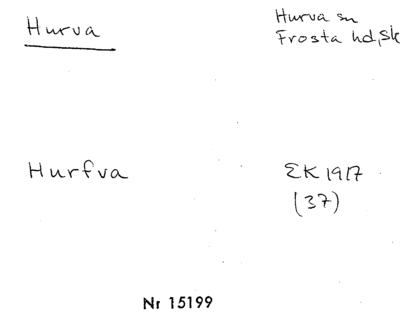 Hurva
Hurva sn
Frosta hd, Sk
Hurfva
EK 1917
(37)
Nr 15199